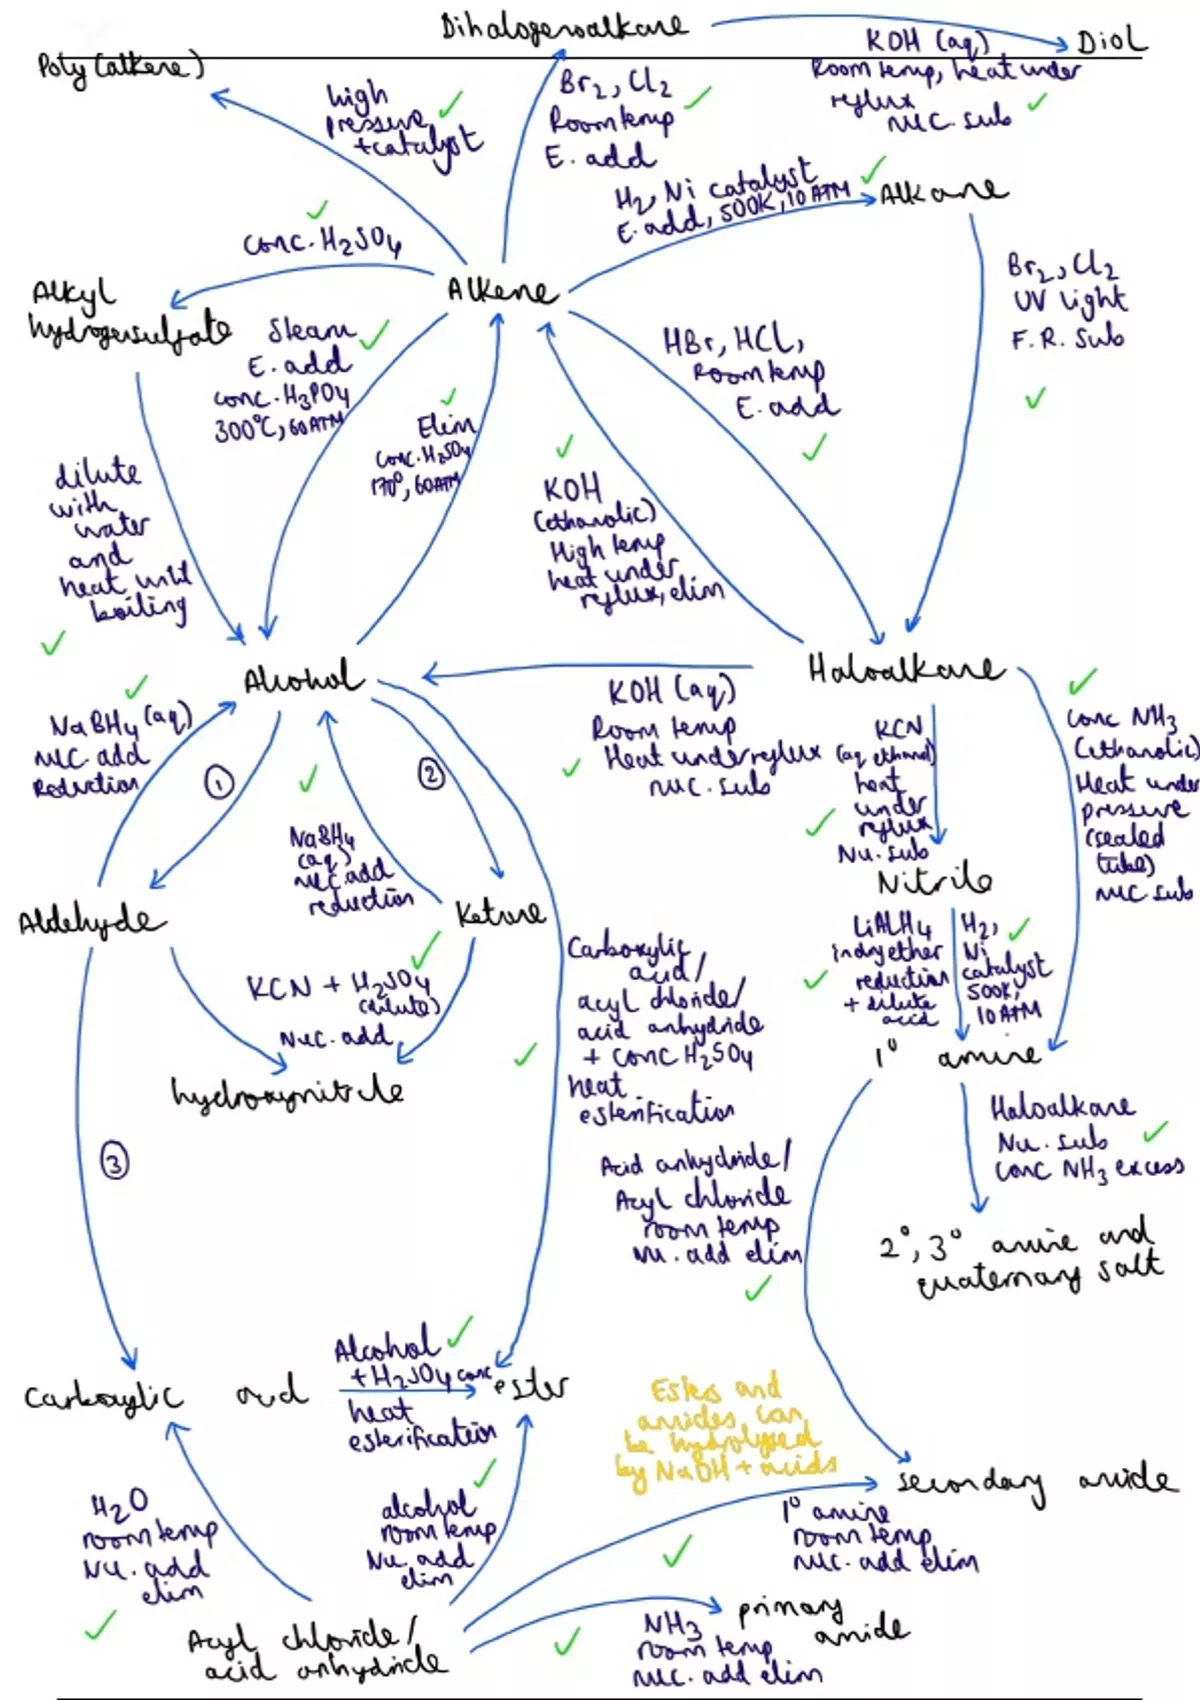 Dihalogenoalkane
Diol
Poly(alkene)
KOH (aq)
Room temp, heat under
reflux
nuc. sub
high
pressure
+catalyst
Br2, Cl2
Room temp
E. add
H2, Ni catalyst
E. add, 500K, 10 ATM
Alkane
conc. H2SO4
Alkene
Alkyl
hydrogensulfate
Br2, Cl2
UV light
F.R. Sub
Steam
E. add
conc. H3PO4
300°C, 60 ATM
HBr, HCl,
Room temp
E. add
Elim
conc. H2SO4
170°, 60ATM
KOH
(ethanolic)
High temp
heat under
reflux, elim
dilute
with
water
and
heat until
boiling
Alcohol
Haloalkane
KOH (aq)
Room temp
Heat under reflux
nuc. sub
NaBH4 (aq)
nuc. add
Reduction
①
②
NaBH4
(aq)
nuc. add
reduction
KCN
(aq ethanol)
heat
under
reflux
Nu. sub
conc NH3
(ethanolic)
Heat under
pressure
(sealed
tube)
nuc. sub
Nitrile
Aldehyde
Ketone
LiAlH4
in dry ether
reduction
+ dilute
acid
H2,
Ni
catalyst
500K,
10 ATM
KCN + H2SO4
(dilute)
Nuc. add
hydroxynitrile
Carboxylic
acid/
acyl chloride/
acid anhydride
+ conc H2SO4
heat
esterification
1° amine
Haloalkane
Nu. sub
conc NH3 excess
③
Acid anhydride/
Acyl chloride
room temp
nu. add elim
2°, 3° amine and
quaternary salt
Alcohol
+ H2SO4 conc
heat
esterification
Carboxylic acid
ester
Esters and
amides can
be hydrolysed
by NaOH + acids
secondary amide
H2O
room temp
Nu. add
elim
alcohol
room temp
Nu. add
elim
1° amine
room temp
nuc. add elim
Acyl chloride/
acid anhydride
NH3
room temp
nuc. add elim
primary
amide